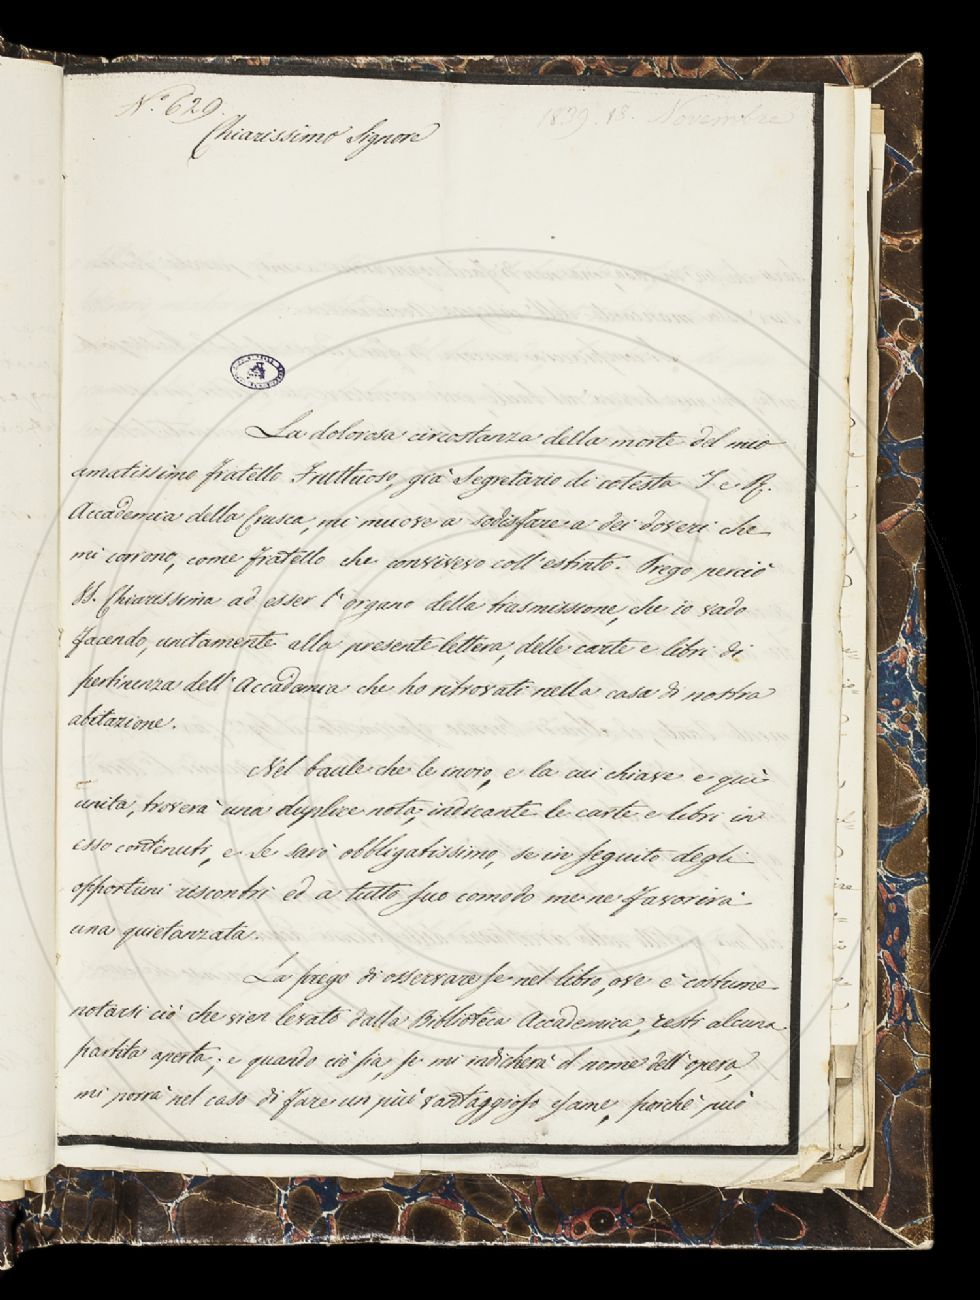 N.° 629.
1839. 18. Novembre
Chiarissimo Signore
La dolorosa circostanza della morte del mio
amatissimo fratello Fruttuoso, già Segretario di cotesta I. e R.
Accademia della Crusca, mi muove a sodisfare a dei doveri che
mi corrono, come fratello che convivevo coll'estinto. Prego perciò
VS. Chiarissima ad esser l'organo della trasmissione, che io vado
facendo, unitamente alla presente lettera, delle carte e libri di
pertinenza dell'Accademia che ho ritrovati nella casa di nostra
abitazione.
Nel baule che le invio, e la cui chiave è quì
unita, troverà una duplice nota, indicante le carte e libri in
esso contenuti, e Le sarò obbligatissimo, se in seguito degli
opportuni riscontri ed a tutto suo comodo me ne favorirà
una quietanzata.
La prego di osservare se nel libro, ove è costume
notarsi ciò che vien levato dalla Biblioteca Accademica, resti alcuna
partita aperta; e quando ciò sia, se mi indicherà il nome dell'opera,
mi porrà nel caso di fare un più vantaggioso esame, poichè può